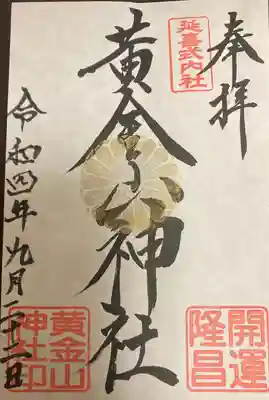 奉拝
延喜式内社
黄金山神社
開運
隆昌
令和四年九月二十二日
黄金山
神社印